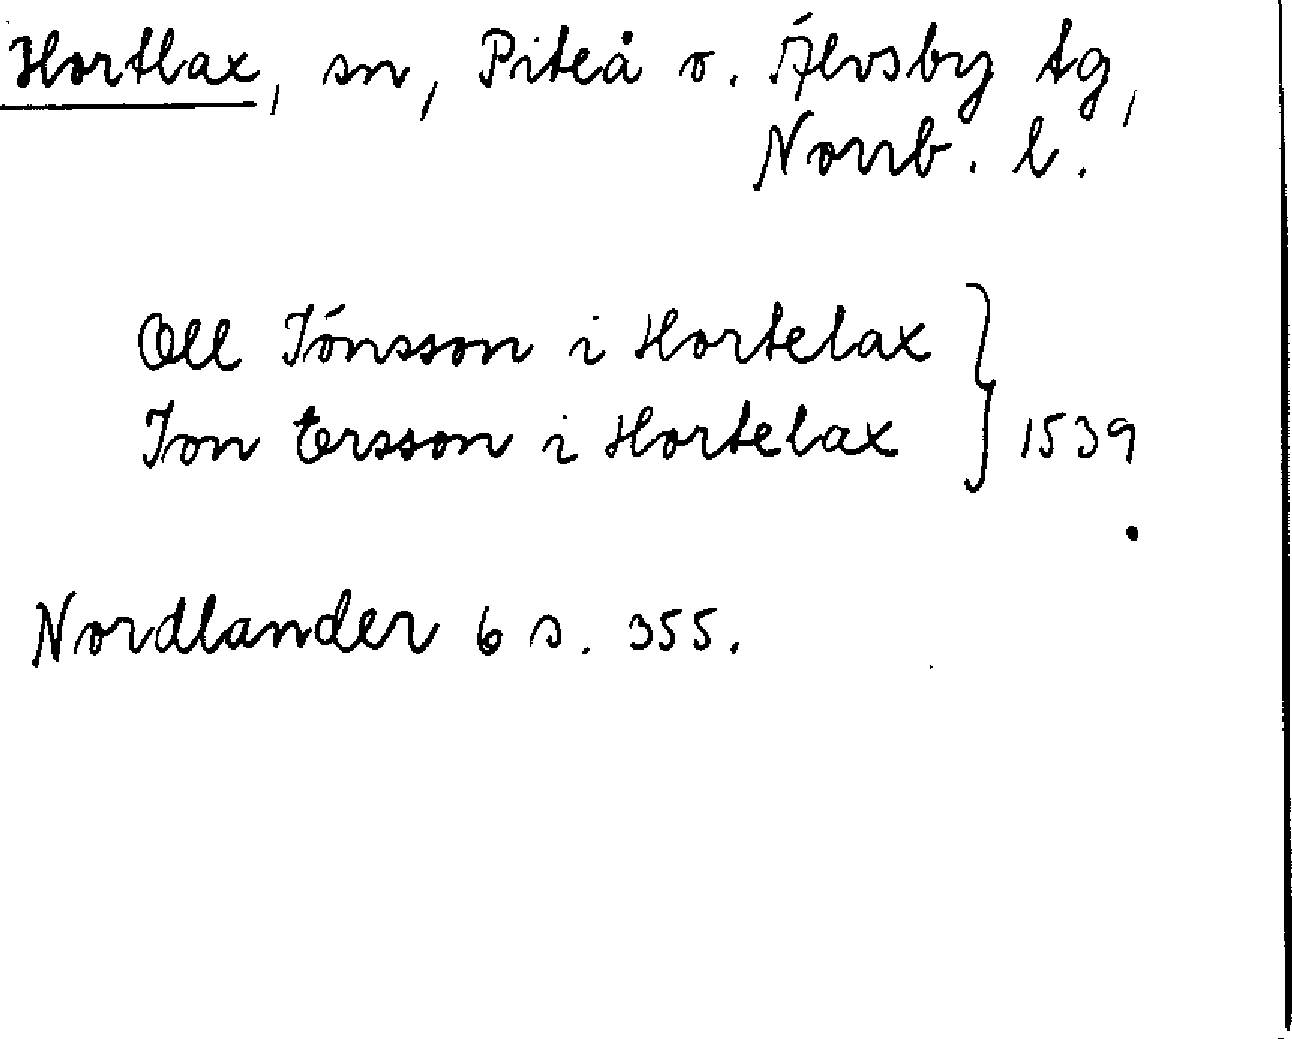 Hortlax, sn, Piteå o. Älvsby tg,
Norrb. l.
Oll Jónsson i Hortelax
Jon Ersson i Hortelax } 1539
Nordlander 6 s. 355.